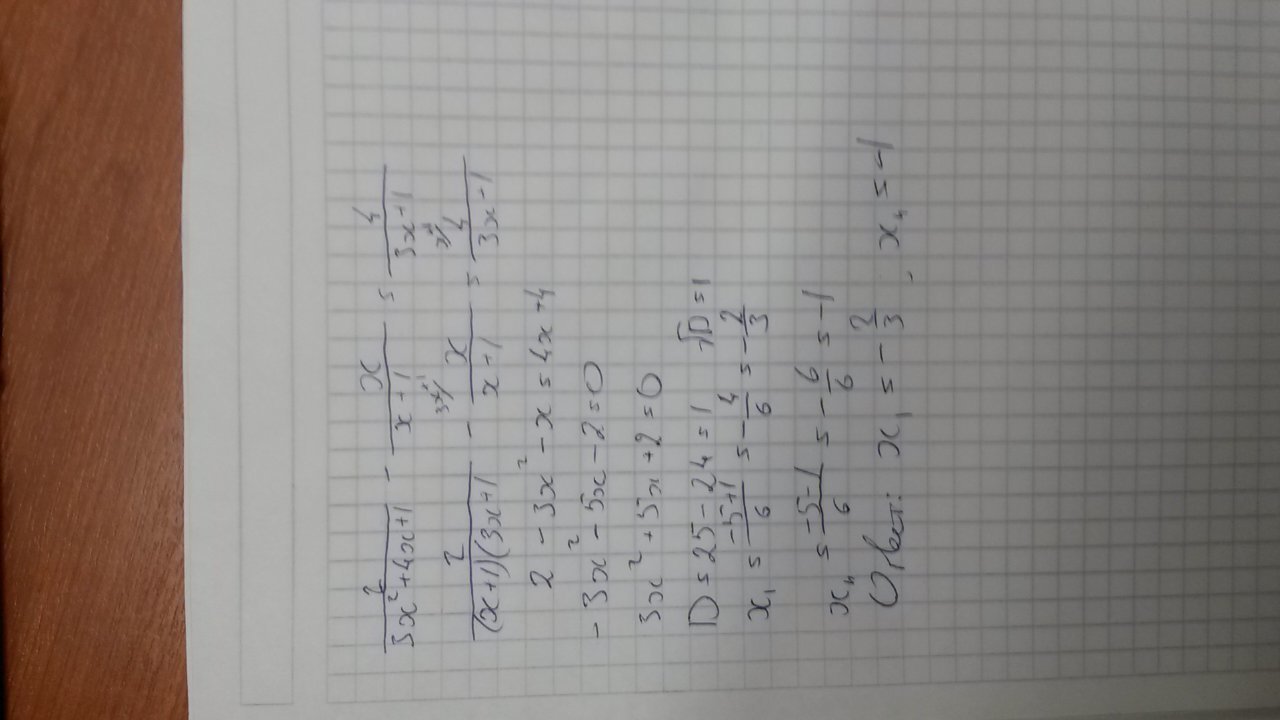 2/(3x²+4x+1) - x/(x+1) = 4/(3x+1)
2/((x+1)(3x+1)) - x/(x+1) ^(3x+1) = 4/(3x+1) ^(x+1)
2 - 3x² - x = 4x+4
-3x² - 5x - 2 = 0
3x² + 5x + 2 = 0
D = 25 - 24 = 1 √D = 1
x₁ = (-5+1)/6 = -4/6 = -2/3
x₂ = (-5-1)/6 = -6/6 = -1
Ответ: x₁ = -2/3, x₂ = -1